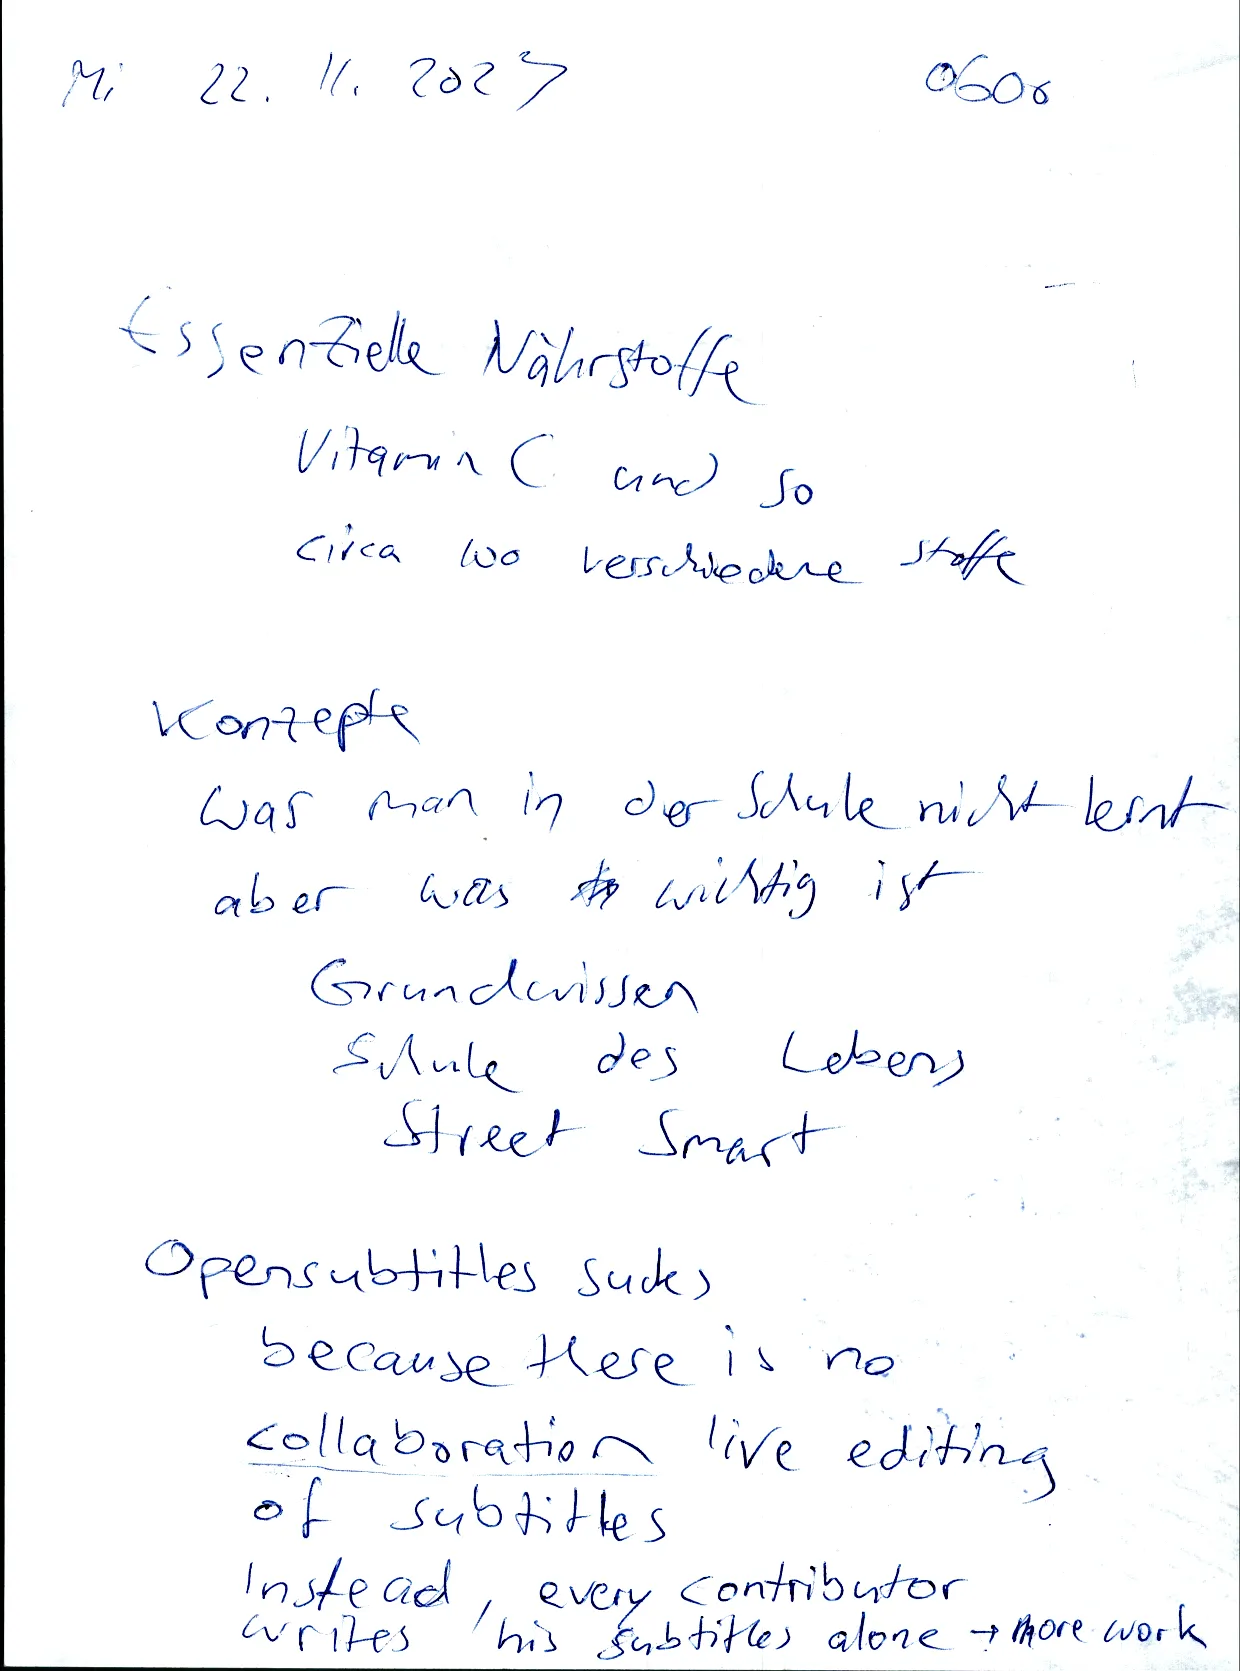 Mi 22. 11. 2023 0600
Essenzielle Nährstoffe
Vitamin C und so
circa 100 verschiedene Stoffe
Konzepte
was man in der Schule nicht lernt
aber was wichtig ist
Grundwissen
Schule des Lebens
Street Smart
Opensubtitles sucks
because there is no
collaboration live editing
of subtitles
Instead, every contributor
writes his subtitles alone → more work